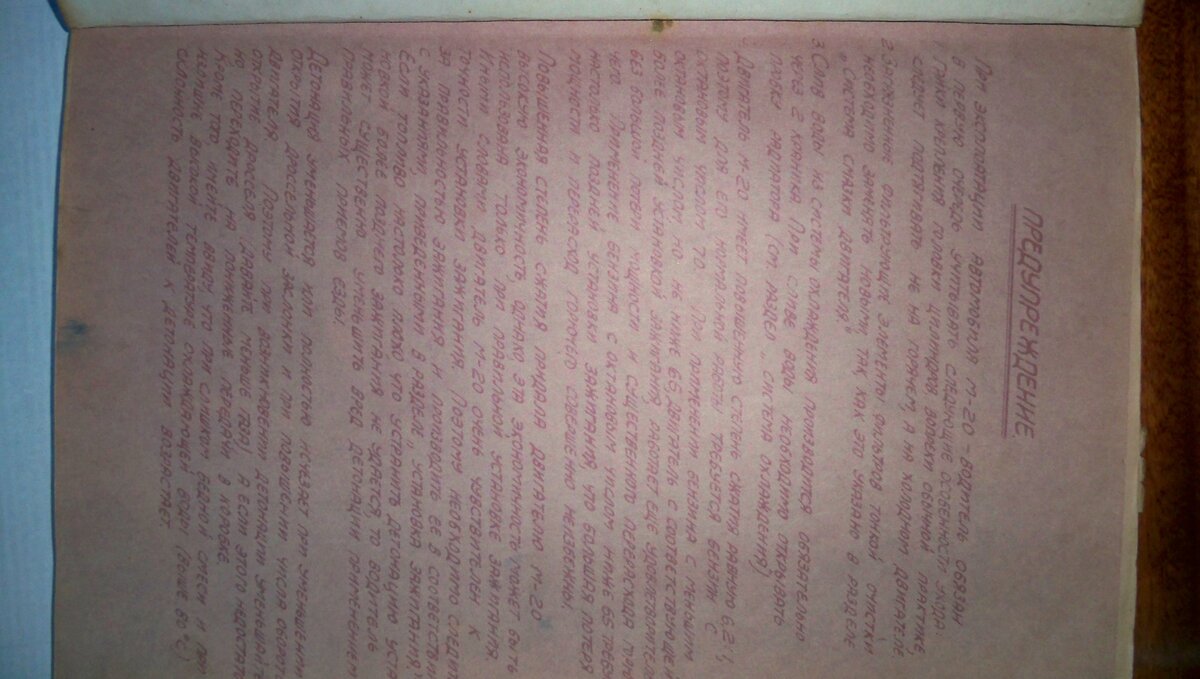 ПРЕДУПРЕЖДЕНИЕ.
При эксплоатации автомобиля М-20 - водитель обязан
в первую очередь учитывать следующие особенности ухода:
1. Гайки крепления головки цилиндров, вопреки обычной практике,
следует подтягивать не на горячем, а на холодном двигателе
2. Загрязненные фильтрующие элементы фильтров тонкой очистки
необходимо заменять новыми, так, как это указано в разделе
„Система смазки двигателя"
3. Слив воды из системы охлаждения производится обязательно
через 2 краника. При сливе воды необходимо открывать
пробку радиатора (см. раздел „Система охлаждения)
Двигатель М-20 имеет повышенную степень сжатия равную 6,2:1,
поэтому для его нормальной работы требуется бензин с
октановым числом 70. При применении бензина с меньшим
октановым числом, но не ниже 66, двигатель с соответствующей
более поздней установкой зажигания, работает еще удовлетворительно
без большой потери мощности и существенного перерасхода
Применение бензина с октановым числом ниже 66
настолько поздней установки зажигания, что большая потеря
мощности и перерасход горючего совершенно неизбежны.
Повышенная степень сжатия придала двигателю М-20
высокую экономичность, однако эта экономичность может быть
использована только при правильной установке зажигания
Иными словами двигатель М-20 очень чувствителен к
точности установки зажигания. Поэтому необходимо
за правильностью зажигания и производить ее в
с указаниями, приведенными в разделе „Установка зажигания"
Если топливо настолько плохо что устранить детонацию
новкой более позднего зажигания не удается, то водитель
может существенно уменьшить вред детонации применением
правильных приемов езды.
Детонация уменьшается или полностью исчезает при уменьшении
открытия дроссельной заслонки и при повышении числа
двигателя. Поэтому при возникновении детонации уменьшайте
открытие дросселя (давайте меньше газа) а если этого
но, переходите на пониженные передачи в коробке.
Кроме того имейте ввиду что при слишком бедной смеси и при
излишне высокой температуре охлаждающей воды (выше 80°С)
склонность двигателя к детонации возрастает.